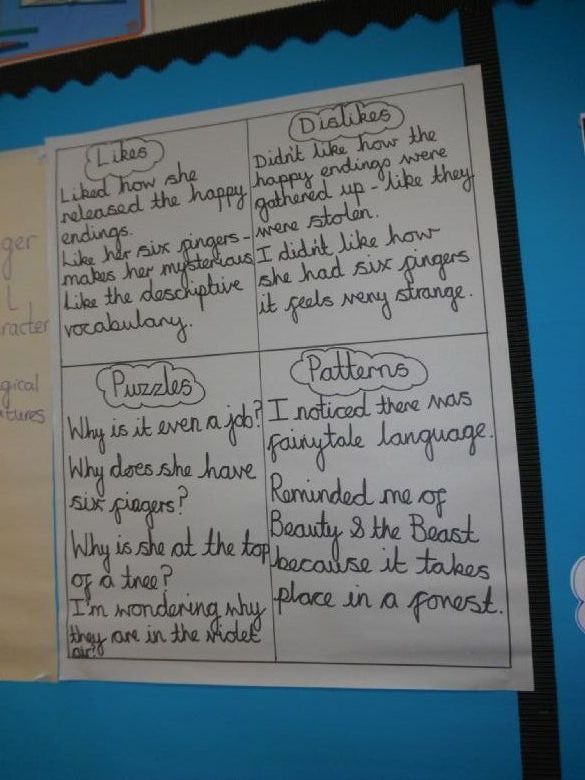 ger
L
racter
gical
tures
Likes
Liked how she
released the happy
endings.
Like her six fingers -
makes her mysterious
Like the descriptive
vocabulary.
Dislikes
Didn't like how the
happy endings were
gathered up - like they
were stolen.
I didn't like how
she had six fingers
it feels very strange.
Puzzles
Why is it even a job?
Why does she have
six fingers?
Why is she at the top
of a tree?
I'm wondering why
they are in the violet
air?
Patterns
I noticed there was
fairytale language.
Reminded me of
Beauty & the Beast
because it takes
place in a forest.